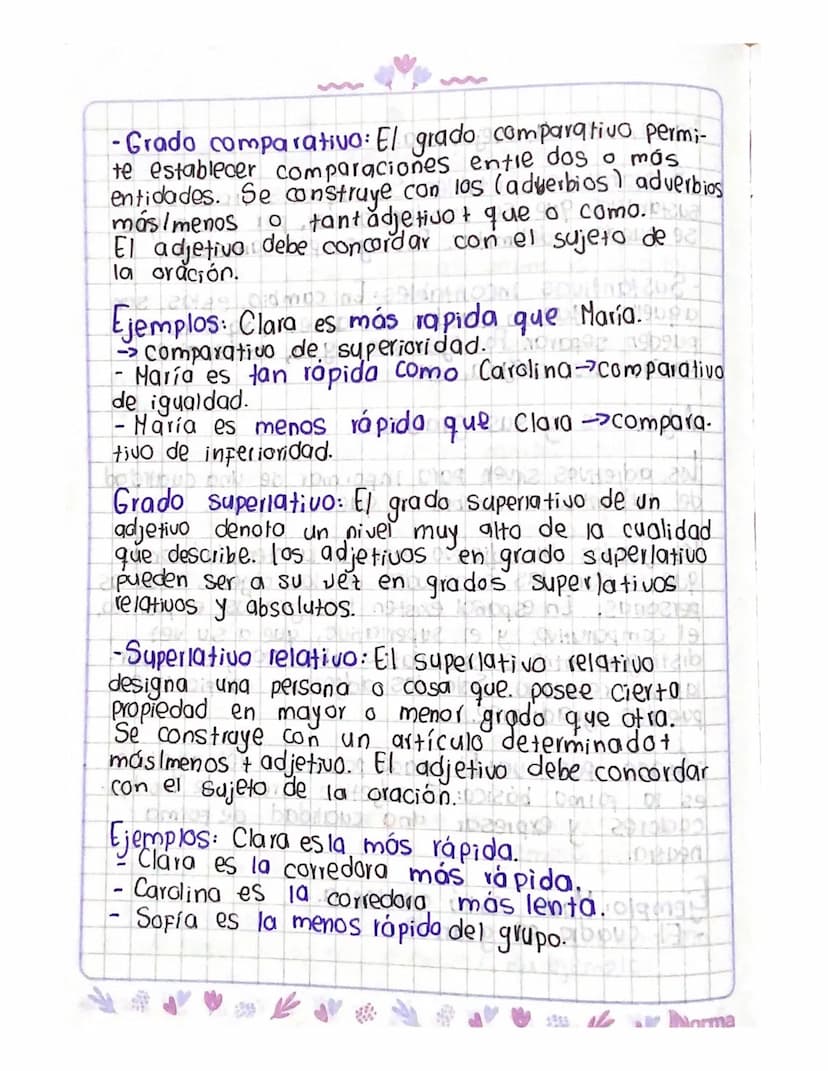 - Grado comparativo: El grado comparativo permi-
te establecer comparaciones entre dos o más
entidades. Se construye con los (adverbios) adverbios
más/menos o tant adjetivo + que o como.
El adjetivo debe concordar con el sujeto de
la oración.
Ejemplos: Clara es más rapida que María.
→ comparativo de superioridad.
- María es tan rápida como Carolina → comparativo
de igualdad.
- María es menos rápida que Clara → compara-
tivo de inferioridad.
Grado superlativo: El grado superlativo de un
adjetivo denota un nivel muy alto de la cualidad
que describe. los adjetivos en grado superlativo
pueden ser a su vez en grados superlativos
relativos y absolutos.
- Superlativo relativo: El superlativo relativo
designa una persona o cosa que posee cierta
propiedad en mayor o menor grado que otra.
Se construye con un artículo determinado +
más/menos + adjetivo. El adjetivo debe concordar
con el sujeto de la oración.
Ejemplos: Clara es la más rápida.
- Clara es la corredora más rápida.
- Carolina es la corredora más lenta.
- Sofía es la menos rápida del grupo.
Norma